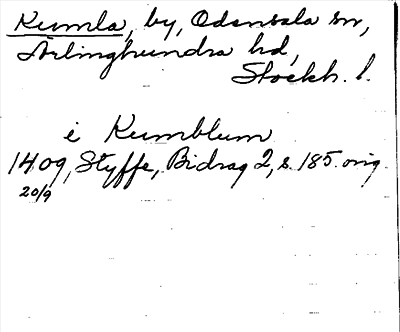 Kumla, by, Odensala sn,
Ärlinghundra hd,
Stockh. l.
i Kumblum
1409, Styffe, Bidrag 2, s. 185. orig.
20/9